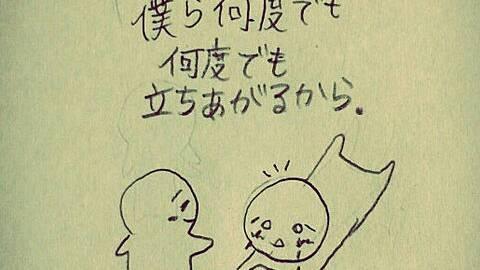 僕ら何度でも
何度でも
立ちあがるから。